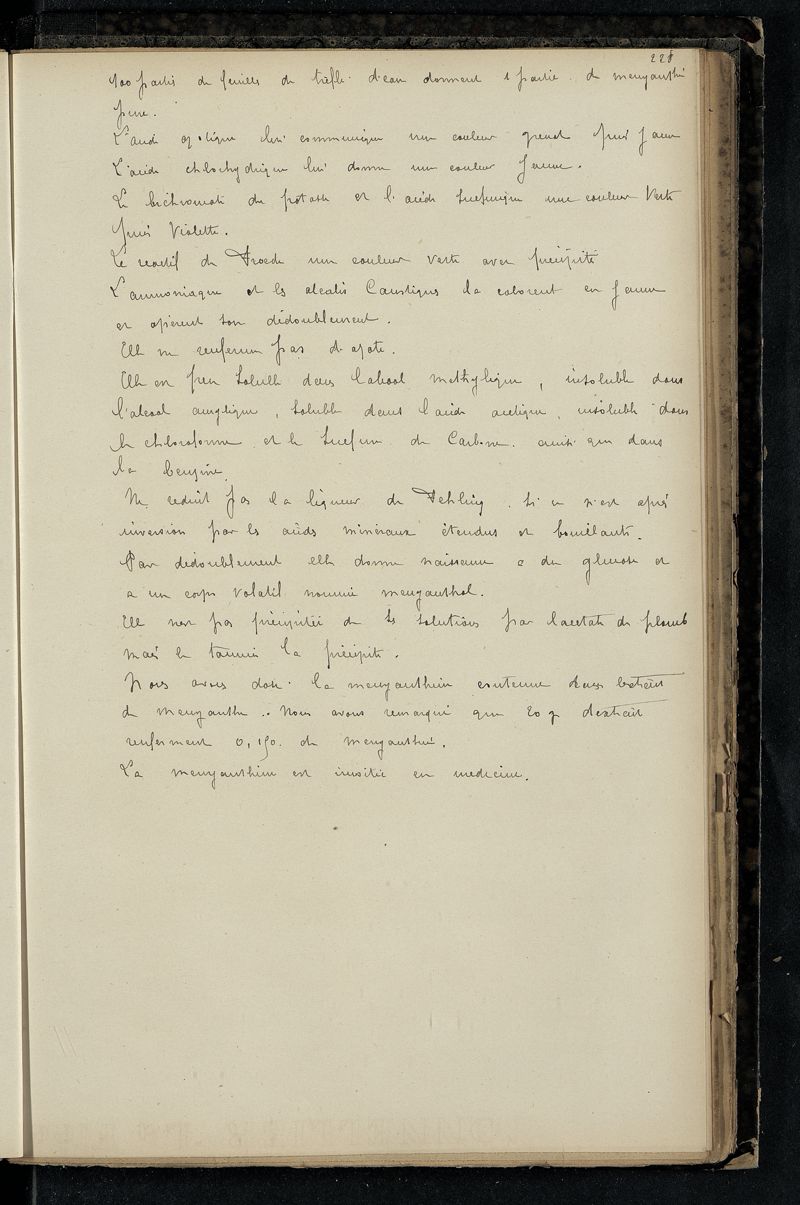 228
100 parties de feuilles de trefle d'eau donnent 1 partie de menyanthi
pure.
L'acide azotique lui communique une couleur grenat puis jaune
L'acide chlorhydrique lui donne une couleur jaune.
Le bichromate de potasse et l'acide sulfurique une couleur verte
puis violette.
Le reactif de Froede une couleur verte avec précipité
L'ammoniaque et les alcalis caustiques la colorent en jaune
et opèrent son dédoublement.
Elle ne renferme pas d'azote.
Elle est peu soluble dans l'alcool methylique, insoluble dans
l'alcool amylique, soluble dans l'acide acetique, insoluble dans
le chloroforme et le sulfure de Carbone ainsi que dans
la benzine.
Ne reduit pas la liqueur de Fehling. si ce n'est après
inversion par les acides minéraux étendus et bouillants.
Par dédoublement elle donne naissance a du glucose et
a un corps volatil nommé menyanthol.
Elle n'est pas précipitée de ses solutions par l'acetate de plomb
mais le tannin la précipite.
Nous avons dosé la menyanthine contenue dans l'extrait
de menyanthe. Nous avons remarqué que 20 g d'extrait
renferment 0,150. de menyanthine.
La menyanthine est inusitée en medecine.